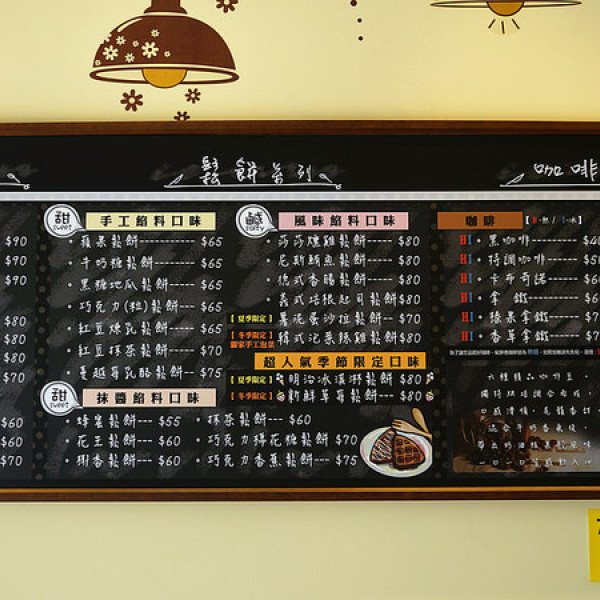 鬆餅系列
咖啡
$90
$90
$90
$80
$80
$80
$70
$60
$60
$70
甜 SWEET
手工餡料口味
蘋果鬆餅 $65
牛奶糖鬆餅 $65
黑糖地瓜鬆餅 $65
巧克力(粒)鬆餅 $65
紅豆煉乳鬆餅 $65
紅豆抹茶鬆餅 $70
蔓越莓乳酪鬆餅 $75
甜 SWEET
抹醬餡料口味
蜂蜜鬆餅 $55
花生鬆餅 $60
楜香鬆餅 $60
抹茶鬆餅 $60
巧克力棉花糖鬆餅 $70
巧克力香蕉鬆餅 $75
鹹 SALTY
風味餡料口味
莎莎燻雞鬆餅 $80
尼斯鮪魚鬆餅 $80
德式香腸鬆餅 $80
義式培根起司鬆餅 $80
【夏季限定】薯泥蛋沙拉鬆餅 $70
【冬季限定】韓式泡菜豬絲鬆餅 $80
獨家手工泡菜
超人氣季節限定口味
【夏季限定】明治冰淇淋鬆餅 $80
【冬季限定】新鮮草莓鬆餅 $80
咖啡
HI 黑咖啡
HI 特調咖啡 $50
HI 卡布奇諾 $60
HI 拿鐵
HI 榛果拿鐵
HI 香草拿鐵
六種精品咖啡豆